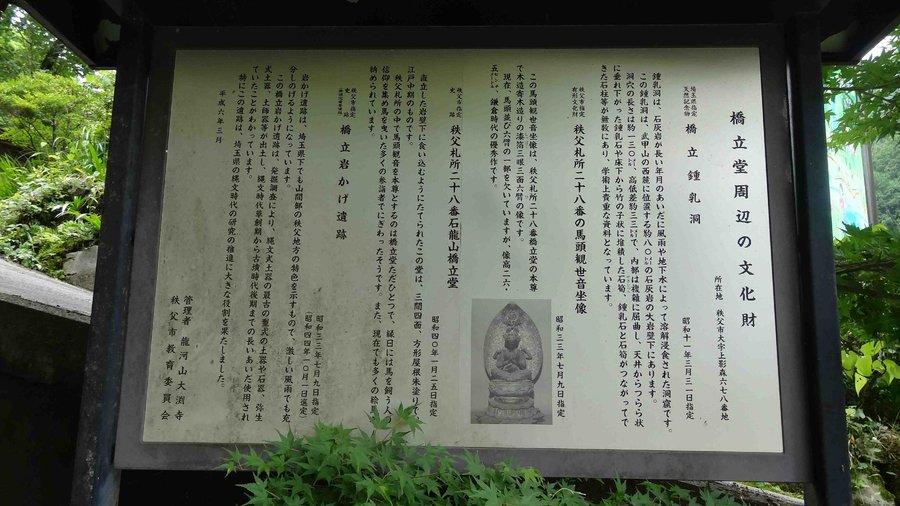 橋立堂周辺の文化財
所在地 秩父市大字上影森六七八番地
埼玉県指定
天然記念物
橋立鍾乳洞
昭和十一年三月三一日指定
鍾乳洞は、石灰岩が長い年月のあいだに風雨や地下水によって溶解浸食された洞窟です。
この鍾乳洞は、武甲山の西麓に位置する約八〇メートルの石灰岩の大岩壁下にあります。
洞穴の長さは約一三〇メートル、高低差約三三メートルで、内部は複雑に屈曲し、天井からつらら状
に垂れ下がった鍾乳石や床下から竹の子状に堆積した石筍、鍾乳石と石筍がつながってで
きた石柱等が無数にあり、学術上貴重な資料となっています。
秩父市指定
有形文化財
秩父札所二十八番の馬頭観世音坐像
昭和三三年七月九日指定
この馬頭観世音坐像は、秩父札所二十八番橋立堂の本尊
で木造寄木造りの漆箔三眼三面六臂の像です。
現在、馬頭並び六臂の一部を欠いていますが、像高二六・
五センチ、鎌倉時代の優秀作です。
秩父市指定
史跡
秩父札所二十八番石龍山橋立堂
昭和四〇年一月二五日指定
直立した岩壁下に食い込むようにたてられたこの堂は、三間四面、方形屋根朱塗りで
江戸中期のものです。
秩父札所の中で馬頭観音を本尊とするのは橋立堂ただひとつで、縁日には馬を飼う人の
信仰を集め馬を曳いた多くの参詣者でにぎわったそうです。また、現在でも多くの絵馬が
納められています。
秩父市指定
史跡
橋立岩かげ遺跡
昭和三三年七月九日指定
(昭和四四年一〇月一日選定)
岩かげ遺跡は、埼玉県下でも山間部の秩父地方の特色を示すもので、激しい風雨でも充
分しのげるようになっています。
この橋立岩かげ遺跡は、発掘調査により、縄文式土器の最古の型式の土器や石器、弥生
式土器、土師器等が出土し、縄文時代草創期から古墳時代後期までの長いあいだ使用され
ていたことがわかっています。
特にこの遺跡は、埼玉県の縄文時代の研究の推進に大きな役割を果たしました。
平成六年三月
管理者 龍河山大渕寺
秩父市教育委員会